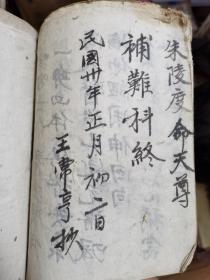 朱陵度命天尊
補難科終
民國卅年正月初二日
王常亨抄